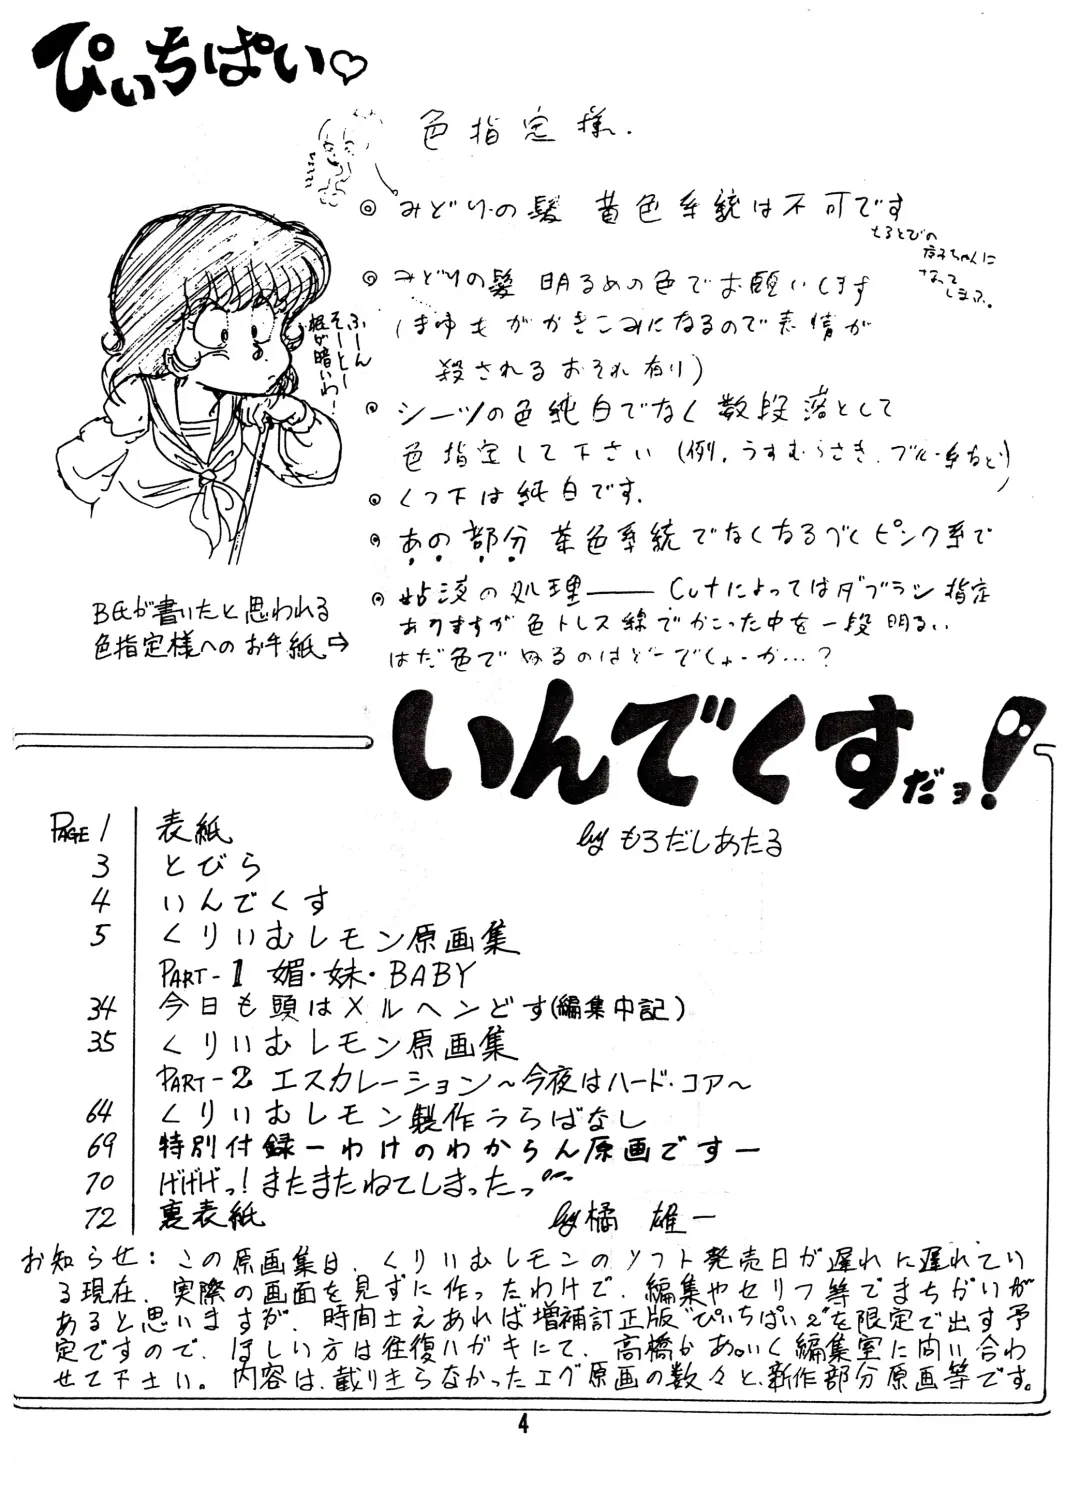 ぴぃちぱい♡
色指定様.
◎ みどりの髪 黄色系統は不可です
なってしまふ。
◎ みどりの髪 明るめの色でお願いします
(まゆもがかきこみになるので表情が
殺されるおそれ有り)
◎ シーツの色純白でなく数段落として
色指定して下さい(例. うすむらさき. ブルー系など)
◎ くつ下は純白です.
◎ あの部分 茶色系統でなくなるべくピンク系で
◎ 粘液の処理―― Cutによってはダブラシ指定
ありますが色トレス線でかこった中を一段明るい
はだ色でぬるのはどーでしょーか…?
ふーん
そーとー
根が暗いわ!
B氏が書いたと思われる
色指定様へのお手紙⇨
いんでくすだョ!
by もろだしあたる
PAGE 1 表紙
3 とびら
4 いんでくす
5 くりいむレモン原画集
PART-1 媚・妹・BABY
34 今日も頭はメルヘンどす(編集中記)
35 くりいむレモン原画集
PART-2 エスカレーション〜今夜はハード・コア〜
64 くりいむレモン製作うらばなし
69 特別付録ーわけのわからん原画ですー
70 げげげっ!またまたねてしまったっ
72 裏表紙
by 橘 雄一
お知らせ:この原画集は、くりいむレモンのソフト発売日が遅れに遅れてい
る現在、実際の画面を見ずに作ったわけで、編集やセリフ等でまちがいが
あると思いますが、時間さえあれば増補訂正版"ぴぃちぱい2"を限定で出す予
定ですので、ほしい方は往復ハガキにて、高橋かあ〜いく編集室に問い合わ
せて下さい。内容は、載りきらなかったエグ原画の数々と、新作部分原画等です。
4